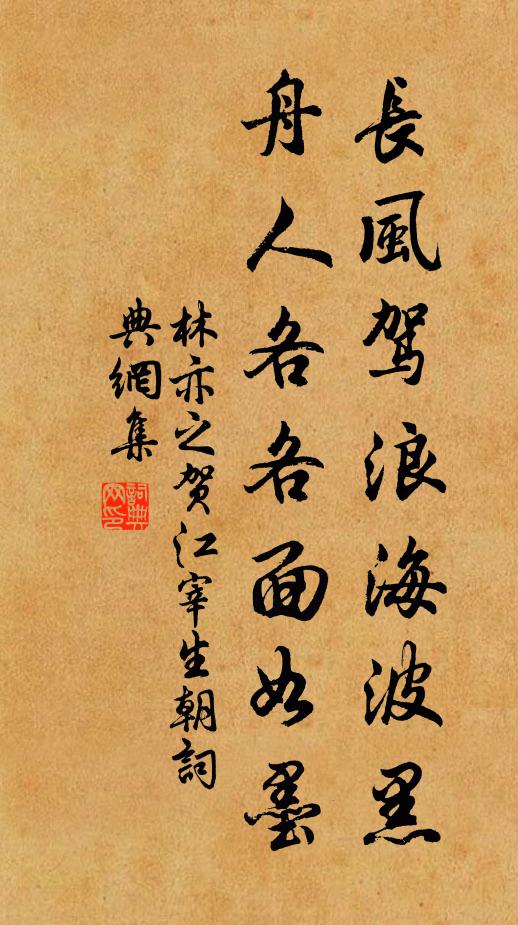 長風駕浪海波黑
舟人各各面如墨
林亦之賀江宰生朝詞
典網集
詞典網印